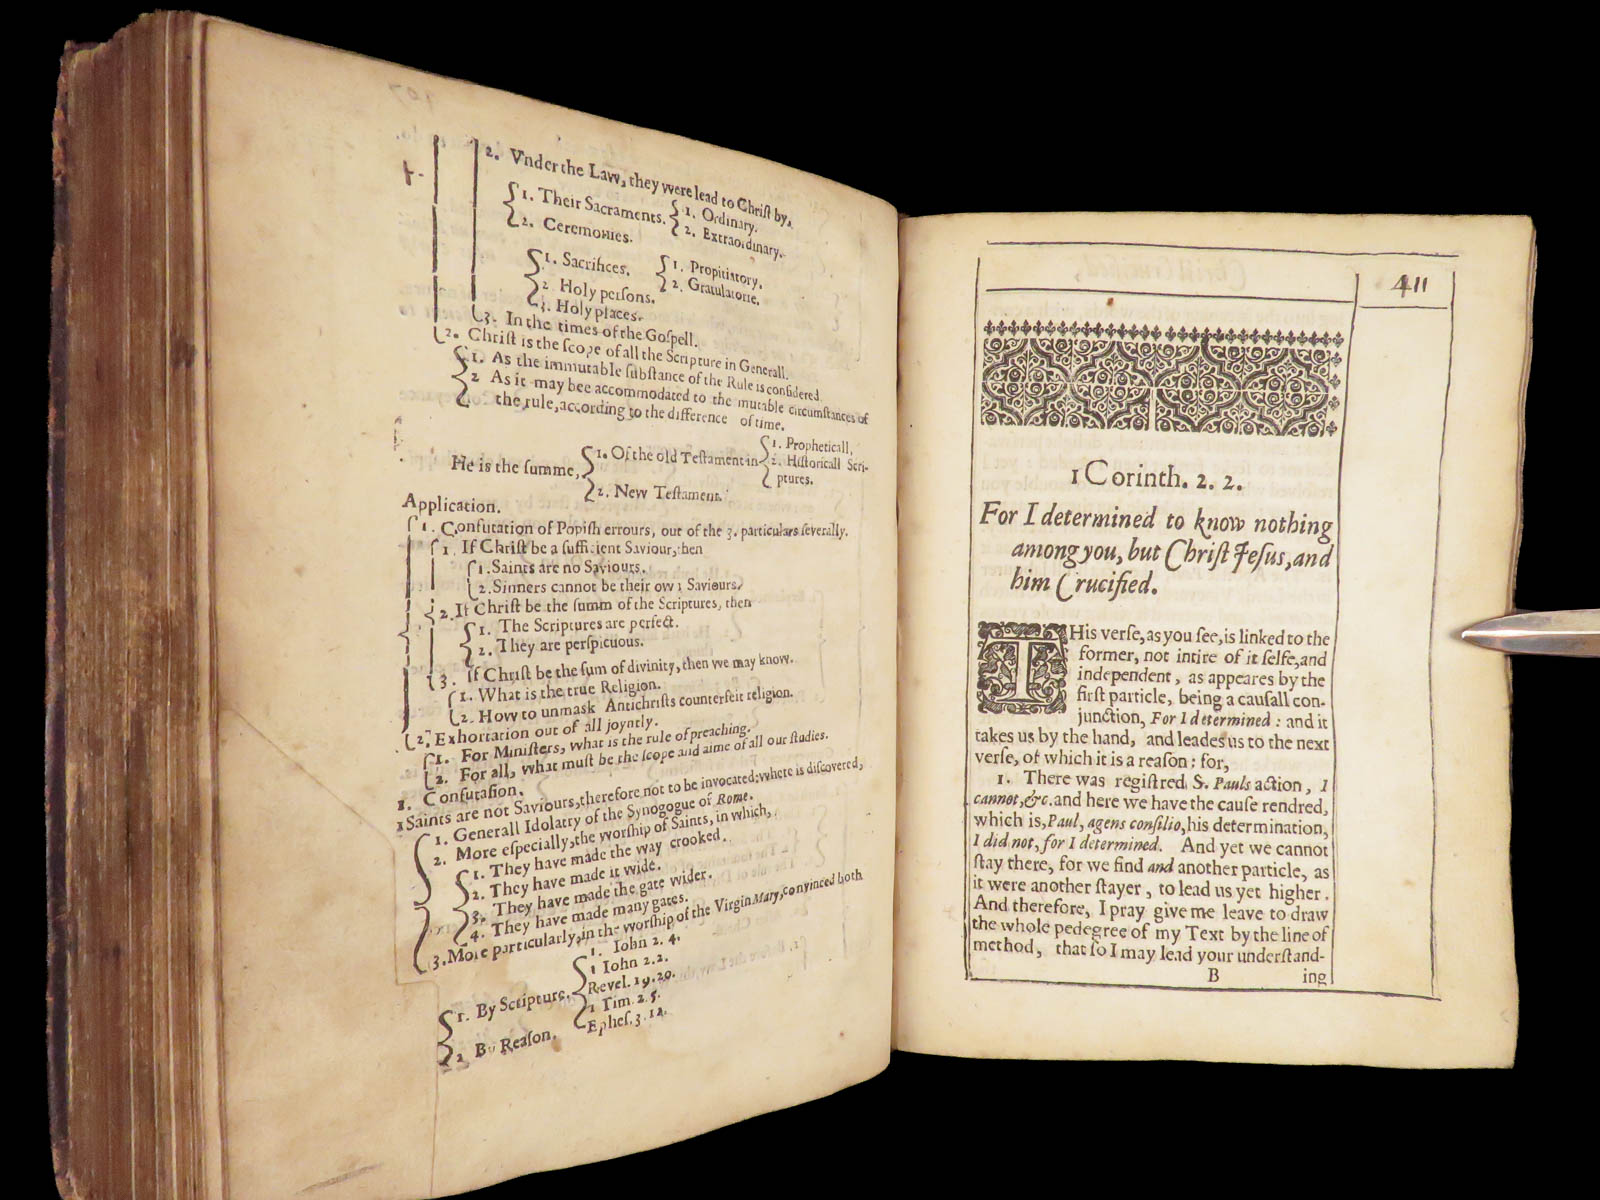 2. Vnder the Law, they were lead to Chriſt by,
1. Their Sacraments. 1. Ordinary.
2. Extraordinary.
2. Ceremonies.
1. Sacrifices. 1. Propitiatory.
2. Gratulatorie.
2 Holy perſons.
3. Holy places.
3. In the times of the Goſpell.
2. Chriſt is the ſcope of all the Scripture in Generall.
1. As the immutable ſubſtance of the Rule is conſidered.
2 As it may bee accommodated to the mutable circumſtances of
the rule, according to the difference of time.
He is the ſumme, 1. Of the old Teſtament in 1. Propheticall,
2. Hiſtoricall Scri-
ptures.
2. New Teſtament.
Application.
1. Confutation of Popiſh errours, out of the 3. particulars ſeverally.
1. If Chriſt be a ſufficient Saviour, then
1. Saints are no Saviours.
2. Sinners cannot be their own Saviours.
2. If Chriſt be the ſumm of the Scriptures, then
1. The Scriptures are perfect.
2. They are perſpicuous.
3. If Chriſt be the ſum of divinity, then we may know.
1. What is the true Religion.
2. How to unmask Antichriſts counterfeit religion.
2. Exhortation out of all joyntly.
1. For Miniſters, what is the rule of preaching.
2. For all, what muſt be the ſcope and aime of all our ſtudies.
1. Confutaſion.
1 Saints are not Saviours, therefore not to be invocated: where is diſcovered,
1. Generall Idolatry of the Synogogue of Rome.
2. More eſpecially, the worſhip of Saints, in which,
1. They have made the way crooked.
2. They have made it wide.
3. They have made the gate wider.
4. They have made many gates.
3. More particularly, in the worſhip of the Virgin Mary, convinced both
1. By Scripture. 1. Iohn 2. 4.
1 Iohn 2. 2.
Revel. 19. 20.
1 Tim. 2. 5.
Epheſ. 3. 12.
2 By Reaſon.
411
1 Corinth. 2. 2.
For I determined to know nothing
among you, but Chriſt Jeſus, and
him Crucified.
THis verſe, as you ſee, is linked to the
former, not intire of it ſelfe, and
independent, as appeares by the
firſt particle, being a cauſall con-
junction, For I determined : and it
takes us by the hand, and leades us to the next
verſe, of which it is a reaſon : for,
1. There was regiſtred S. Pauls action, I
cannot, &c. and here we have the cauſe rendred,
which is, Paul, agens conſilio, his determination,
I did not, for I determined. And yet we cannot
ſtay there, for we find and another particle, as
it were another ſtayer, to lead us yet higher.
And therefore, I pray give me leave to draw
the whole pedegree of my Text by the line of
method, that ſo I may lead your underſtand-
B ing